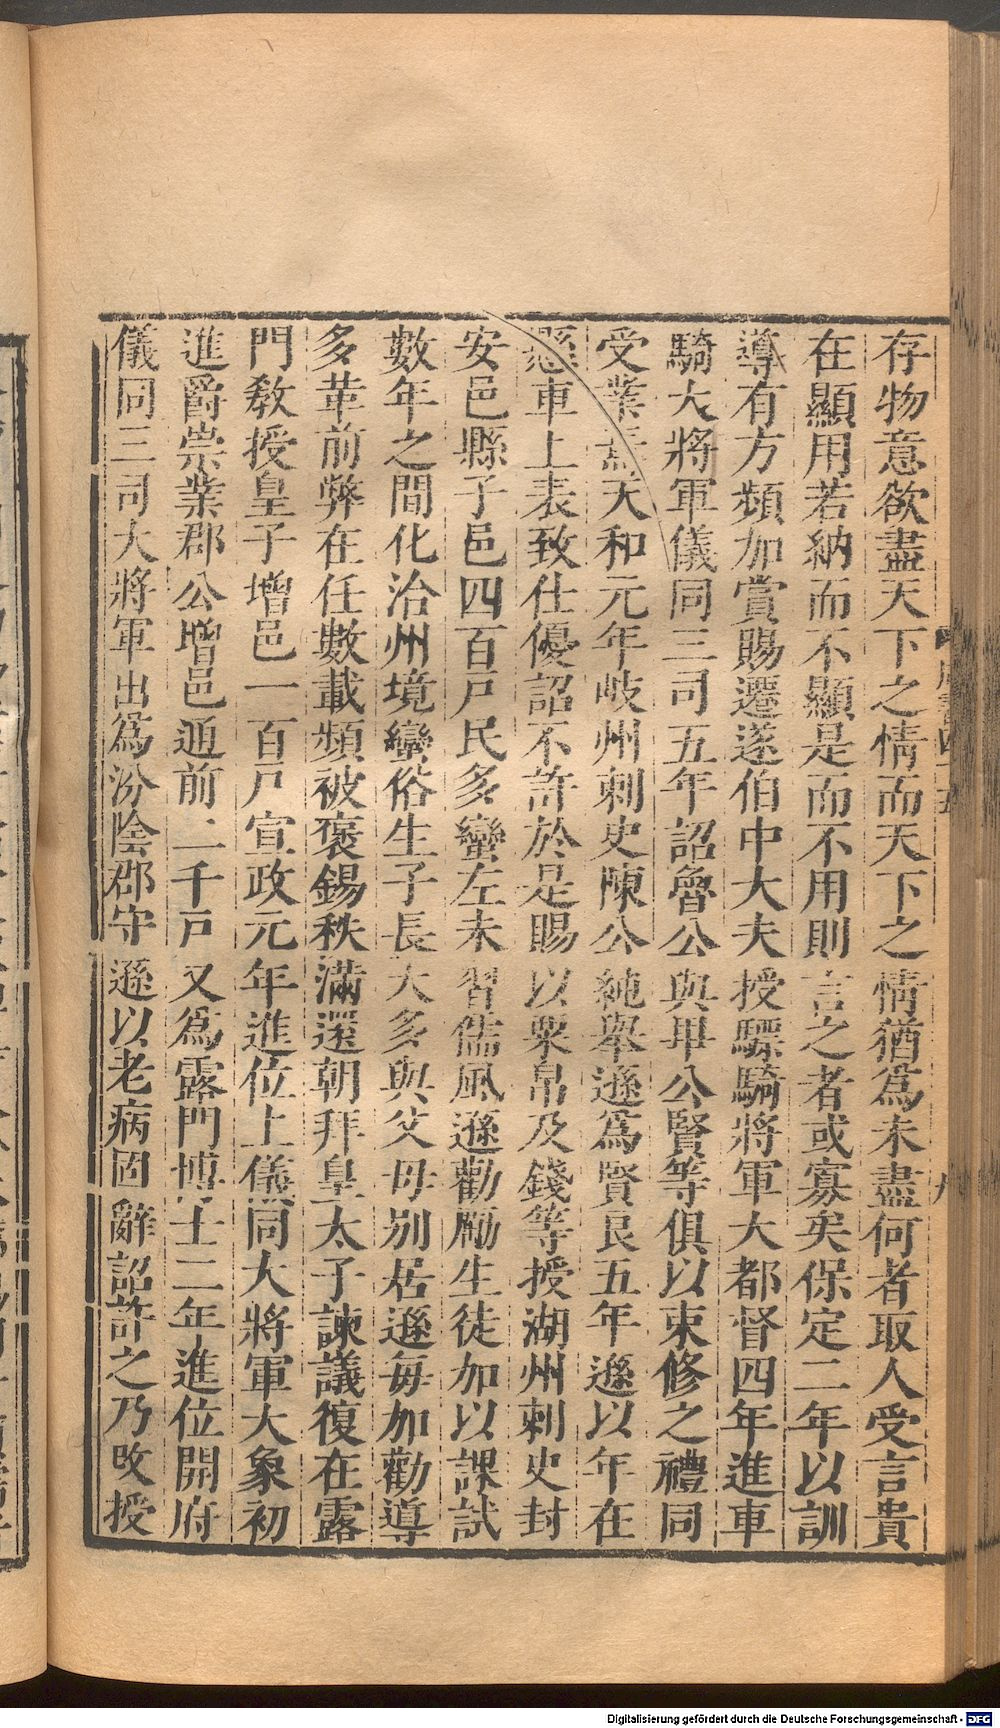 存物意欲盡天下之情而天下之情猶爲未盡何者取人受言貴
在顯用若納而不顯是而不用則言之者或寡矣保定二年以訓
導有方頻加賞賜遷遂伯中大夫授驃騎將軍大都督四年進車
騎大將軍儀同三司五年詔魯公與畢公賢等俱以束修之禮同
受業焉天和元年岐州刺史陳公純舉遜爲賢良五年遜以年在
懸車上表致仕優詔不許於是賜以粟帛及錢等授湖州刺史封
安邑縣子邑四百戸民多蠻左未習儒風遜勸勵生徒加以課試
數年之間化洽州境蠻俗生子長大多與父母别居遜每加勸導
多革前弊在任數載頻被褒錫秩滿還朝拜皇太子諫議復在露
門敎授皇子增邑一百戸宣政元年進位上儀同大將軍大象初
進爵崇業郡公增邑通前二千戸又爲露門博士二年進位開府
儀同三司大將軍出爲汾陰郡守遜以老病固辭詔許之乃改授
Digitalisierung gefördert durch die Deutsche Forschungsgemeinschaft - DFG